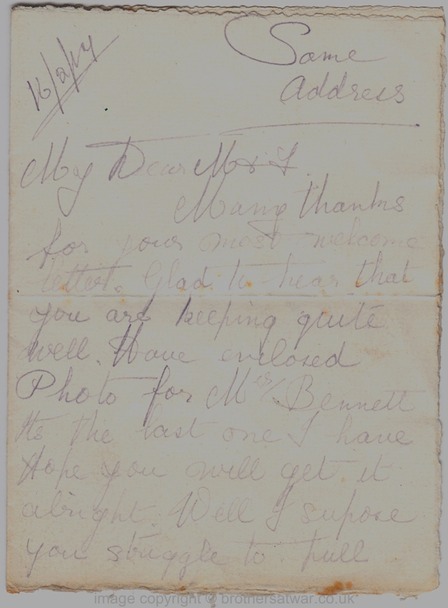 16/2/17
Same
Address
My Dear M & F.
Many thanks
for your most welcome
letter. Glad to hear that
you are keeping quite
well. Have enclosed
Photo for Mrs Bennett
Its the last one I have
Hope you will get it
alright. Well I supose
you struggle to pull
image copyright © brothersatwar.co.uk